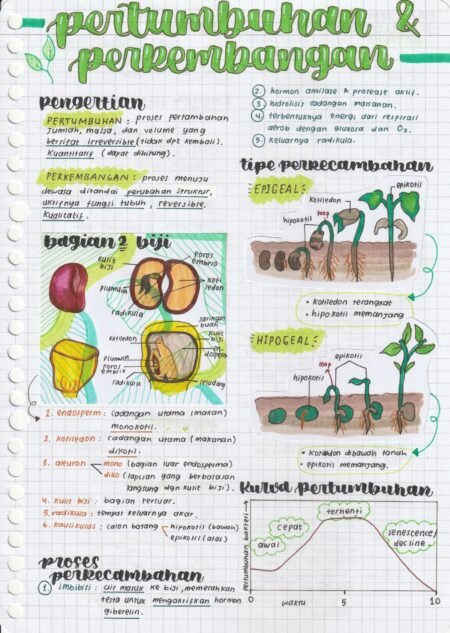 pertumbuhan &
perkembangan
pengertian
PERTUMBUHAN : proses pertambahan
jumlah, massa, dan volume yang
bersifat irreversible (tidak dpt kembali).
Kuantitatif (dapat dihitung).
PERKEMBANGAN : proses menuju
dewasa ditandai perubahan struktur,
aktifnya fungsi tubuh, reversible.
Kualitatif.
bagian2 biji
kulit
biji
poros
embrio
koti
ledon
plumula
radikula
jaringan
buah
kulit
biji
en
dosperm
kotiledon
plumula
poros
embrio
radikula
1. endosperm : cadangan utama (makan)
monokotil.
2. kotiledon : cadangan utama (makanan)
dikotil.
3. aleuron mono (bagian luar endosperma)
diko (lapisan yang berbatasan
langsung dgn kulit biji).
4. kulit biji : bagian terluar.
5. radikula : tempat keluarnya akar.
6. kaulikulus : calon batang hipokotil (bawah)
epikotil (atas)
proses
perkecambahan
1 imbibisi : air masuk ke biji, memecahkan
testa untuk mengaktifkan hormon
giberelin.
2. hormon amilase & protease aktif.
3 hidrolisis cadangan makanan.
4. terbentuknya energi dari respirasi
aerob dengan glukosa dan O2.
5 keluarnya radikula.
tipe perkecambahan
EPIGEAL
epikotil
Kotiledon
loop
hipokotil
• kotiledon terangkat
• hipokotil memanjang
HIPOGEAL
loop
epikotil
hipokotil
• Kotiledon dibawah tanah
• epikotil memanjang.
Kurva pertumbuhan
pertumbuhan bakteri
terhenti
cepat
awal
senescence/
decline
0
waktu
5
10